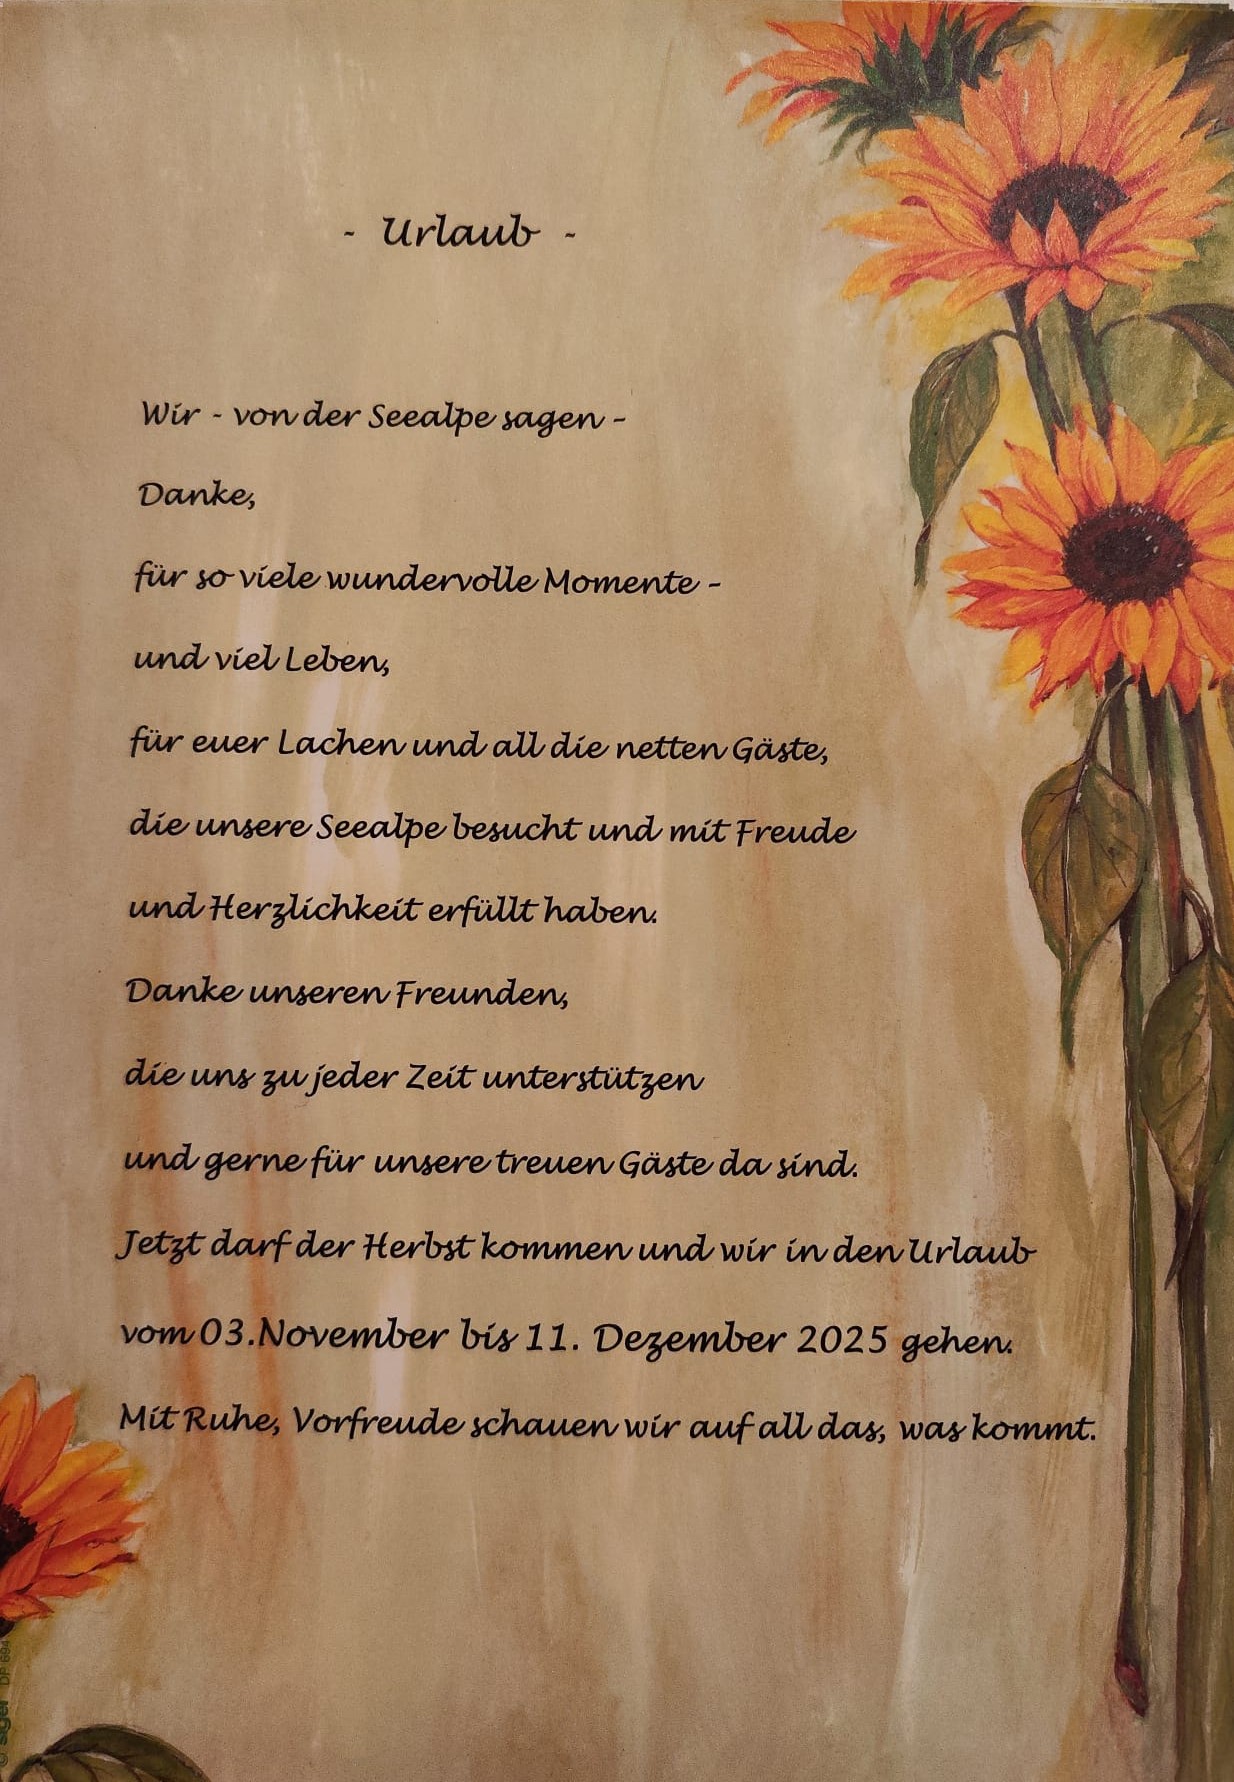 - Urlaub -
Wir - von der Seealpe sagen -
Danke,
für so viele wundervolle Momente -
und viel Leben,
für euer Lachen und all die netten Gäste,
die unsere Seealpe besucht und mit Freude
und Herzlichkeit erfüllt haben.
Danke unseren Freunden,
die uns zu jeder Zeit unterstützen
und gerne für unsere treuen Gäste da sind.
Jetzt darf der Herbst kommen und wir in den Urlaub
vom 03.November bis 11. Dezember 2025 gehen.
Mit Ruhe, Vorfreude schauen wir auf all das, was kommt.
© sigel DP 694